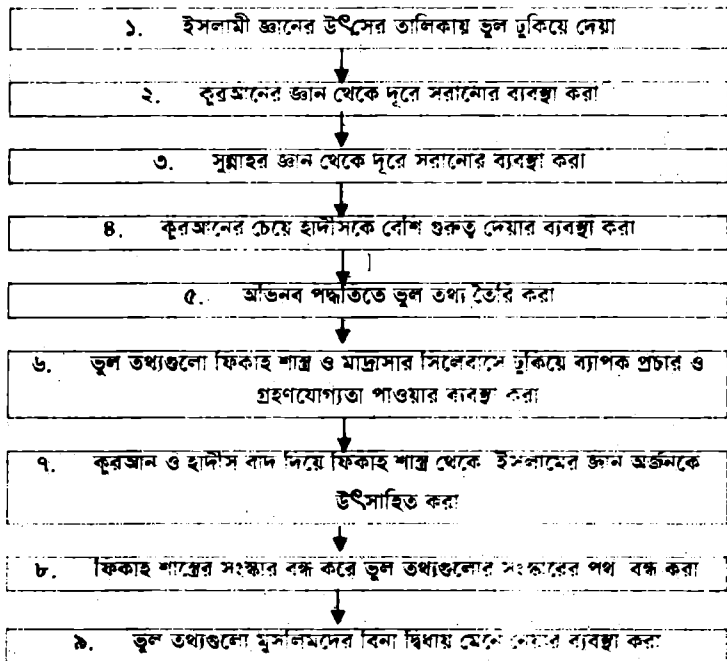 ১. ইসলামী জ্ঞানের উৎসের তালিকায় ভুল ঢুকিয়ে দেয়া
২. কুরআনের জ্ঞান থেকে দূরে সরানোর ব্যবস্থা করা
৩. সুন্নাহর জ্ঞান থেকে দূরে সরানোর ব্যবস্থা করা
৪. কুরআনের চেয়ে হাদীসকে বেশি গুরুত্ব দেয়ার ব্যবস্থা করা
৫. অভিনব পদ্ধতিতে ভুল তথ্য তৈরি করা
৬. ভুল তথ্যগুলো ফিকাহ শাস্ত্র ও মাদ্রাসার সিলেবাসে ঢুকিয়ে ব্যাপক প্রচার ও
গ্রহণযোগ্যতা পাওয়ার ব্যবস্থা করা
৭. কুরআন ও হাদীস বাদ দিয়ে ফিকাহ শাস্ত্র থেকে ইসলামের জ্ঞান অর্জনকে
উৎসাহিত করা
৮. ফিকাহ শাস্ত্রের সংস্কার বন্ধ করে ভুল তথ্যগুলোর সংস্কারের পথ বন্ধ করা
৯. ভুল তথ্যগুলো মুসলিমদের বিনা দ্বিধায় মেনে নেয়ার ব্যবস্থা করা